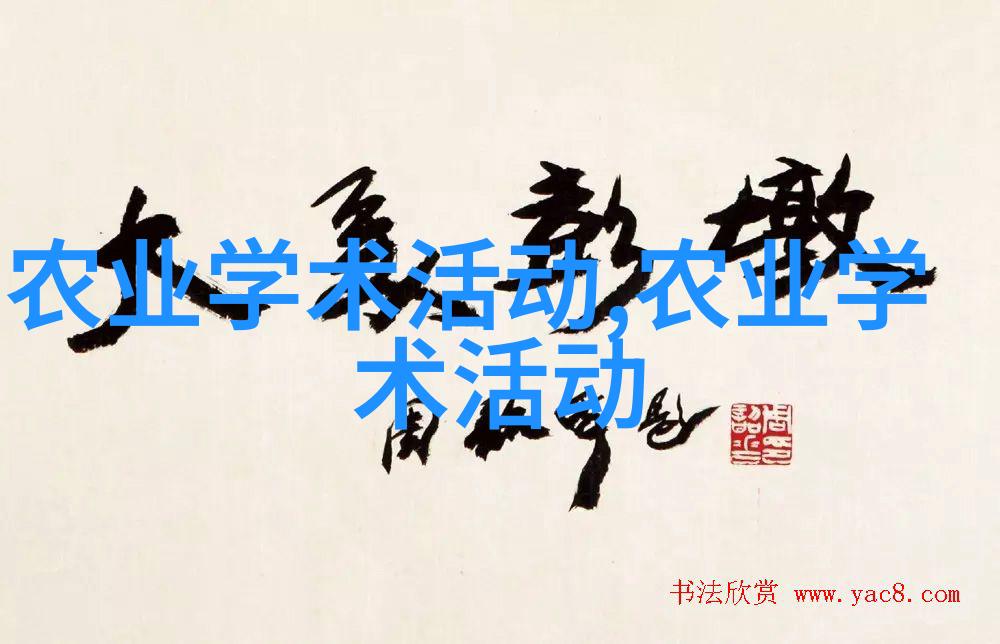 大彭墩
农业学术活动,农业学
术活动
周华题
书法欣赏 www.yac8.com